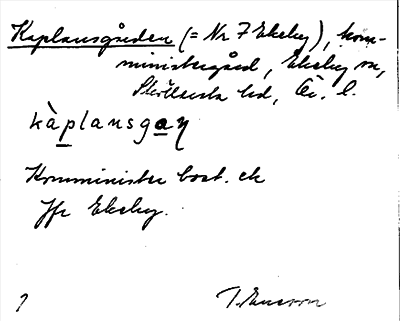 Kaplansgården (= Nr 7 Ekeby), kom-
ministergård, Ekeby sn,
Skyllersta hd, Ör. l.
kàplansgaɳ
Komminister bost. ck
Jfr Ekeby.